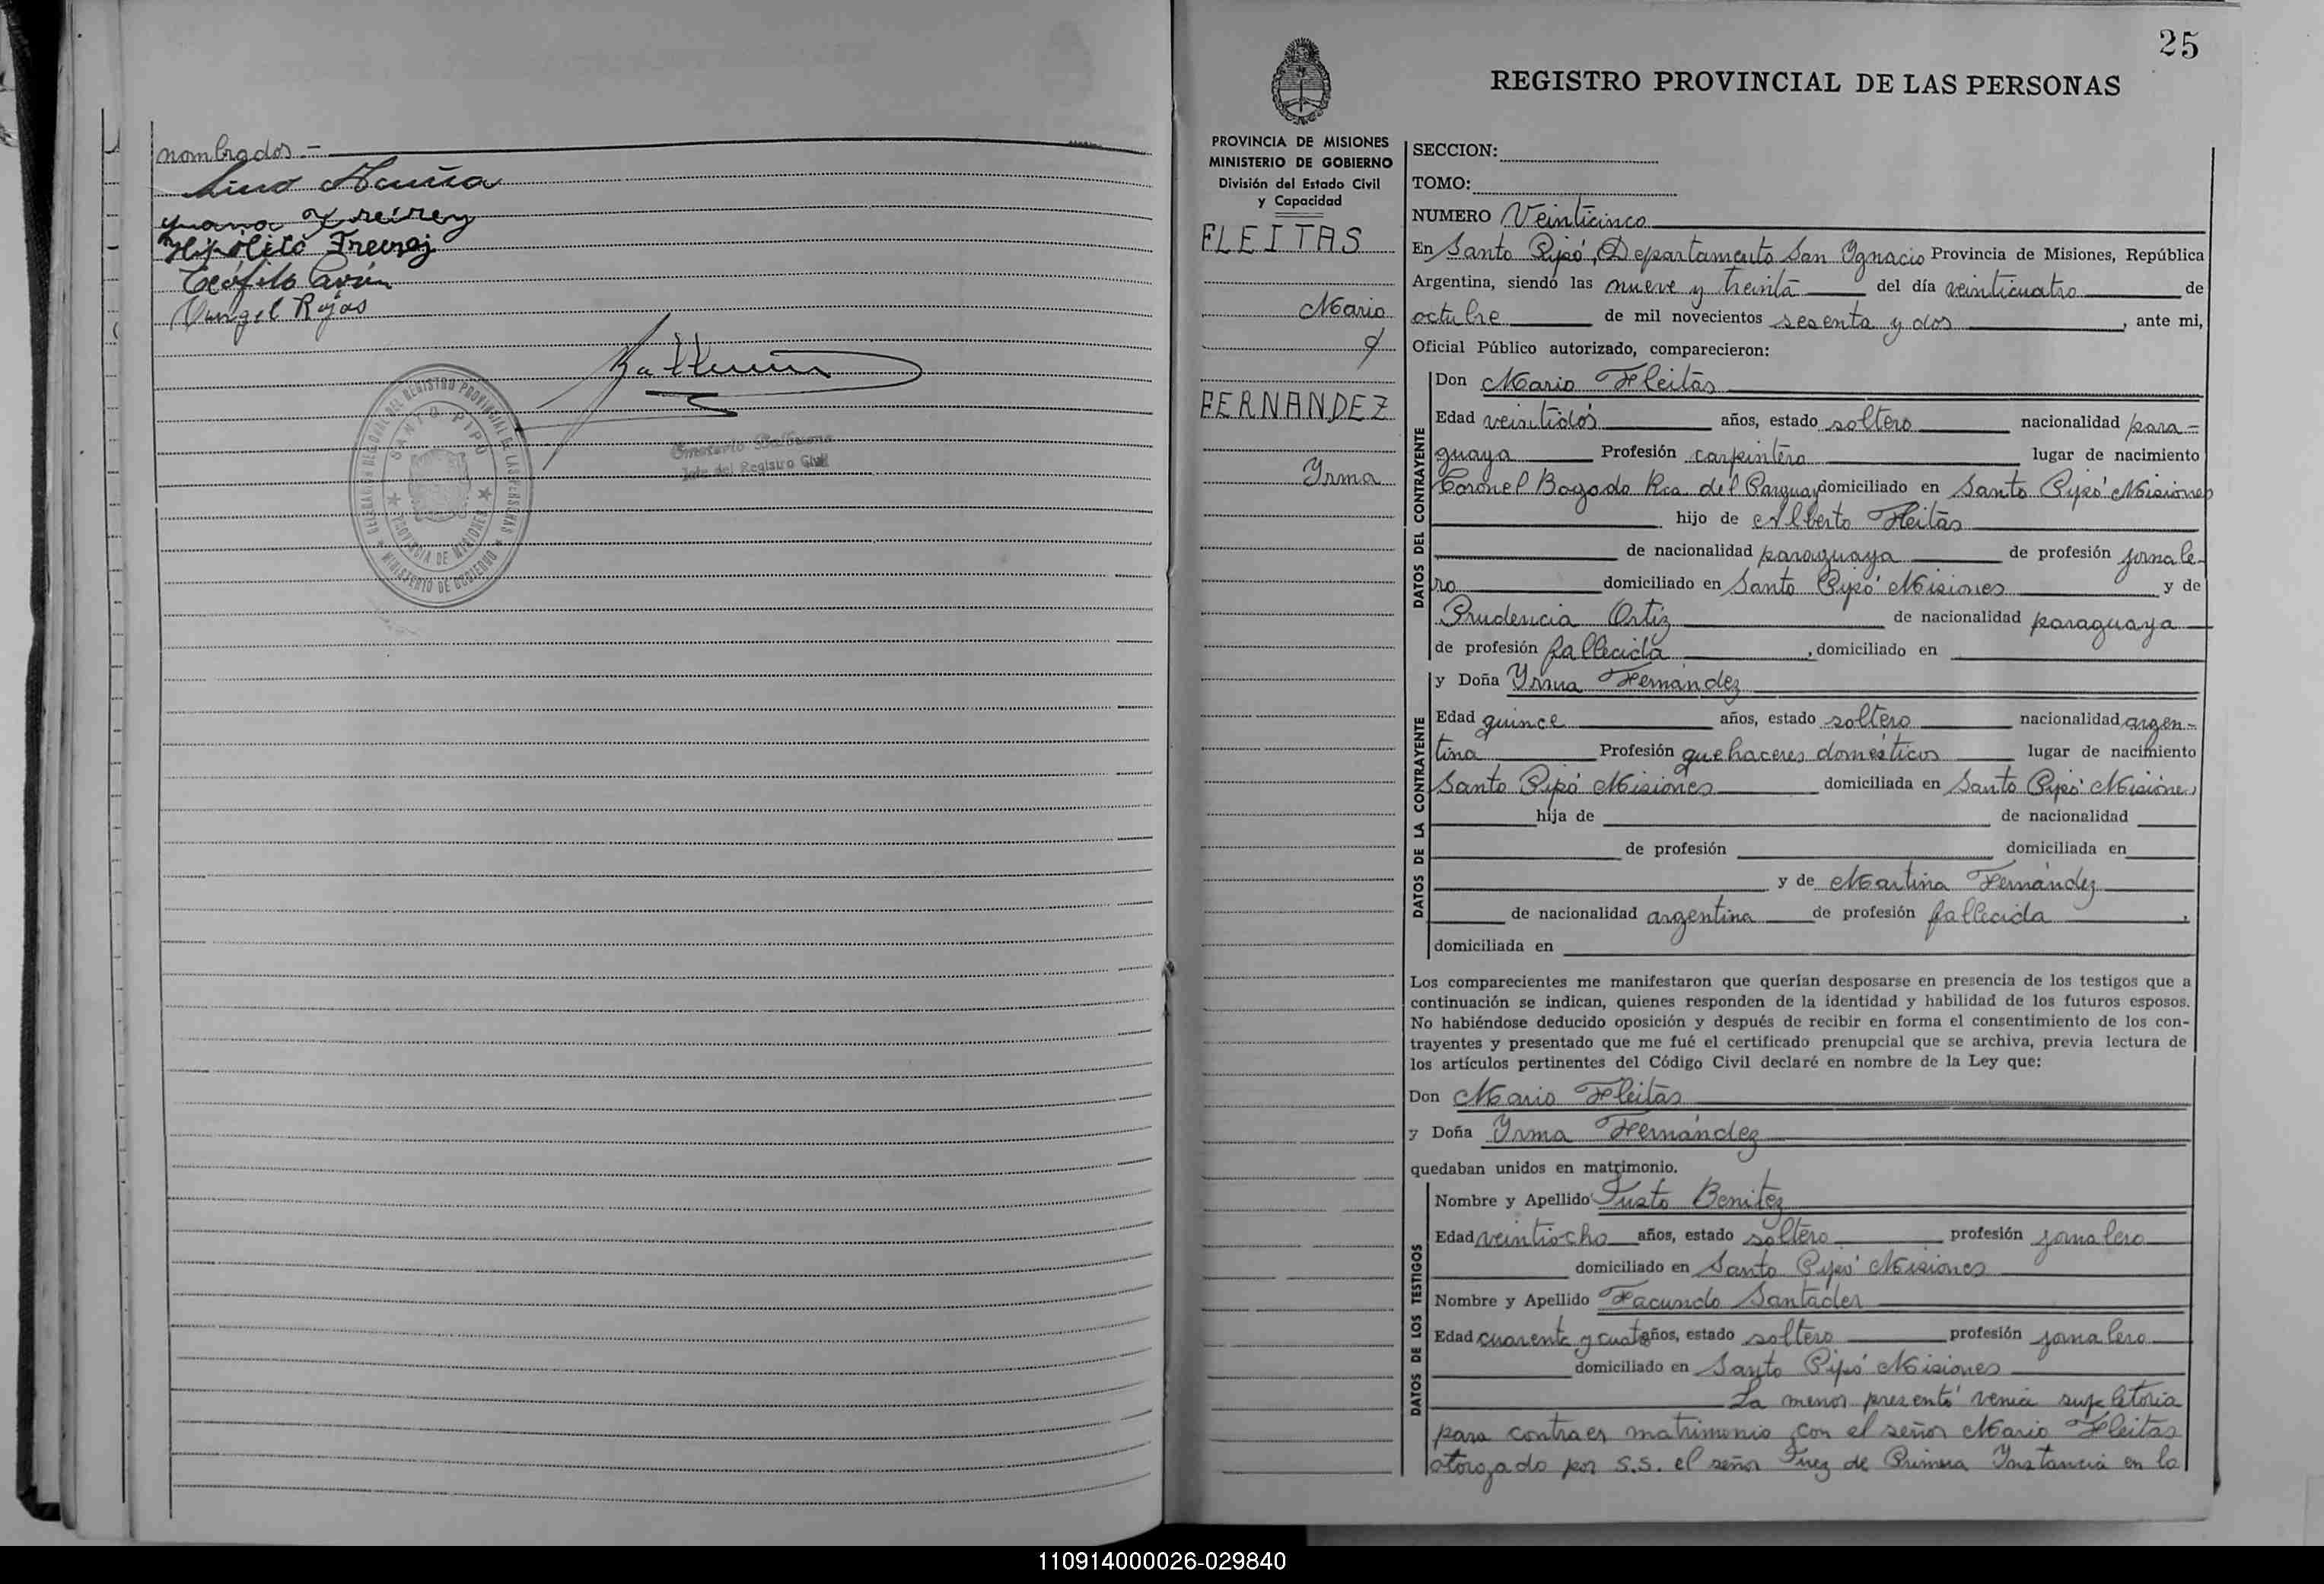 nombrados.-
Lino Acuña
Hipólito
Teófilo
Rojas
GENERAL DEL REGISTRO PROVINCIAL DE LAS PERSONAS
SANTO PIPO
PROVINCIA DE MISIONES
MINISTERIO DE GOBIERNO
Jefe del Registro Civil
25
REGISTRO PROVINCIAL DE LAS PERSONAS
PROVINCIA DE MISIONES
MINISTERIO DE GOBIERNO
División del Estado Civil
y Capacidad
FLEITAS
Mario
y
FERNANDEZ
Yrma
SECCION:
TOMO:
NUMERO Veinticinco
En Santo Pipó, Departamento San Ygnacio Provincia de Misiones, República
Argentina, siendo las nueve y treinta del día veinticuatro de
octubre de mil novecientos sesenta y dos, ante mi,
Oficial Público autorizado, comparecieron:
DATOS DEL CONTRAYENTE
Don Mario Fleitas
Edad veintidós años, estado soltero nacionalidad para-
guaya Profesión carpintero lugar de nacimiento
Coronel Bogado Rca. del Paraguay domiciliado en Santo Pipó Misiones
hijo de Alberto Fleitas
de nacionalidad paraguaya de profesión jornale-
ro domiciliado en Santo Pipó Misiones y de
Prudencia Ortiz de nacionalidad paraguaya
de profesión fallecida, domiciliado en
DATOS DE LA CONTRAYENTE
y Doña Yrma Fernández
Edad quince años, estado soltero nacionalidad argen-
tina Profesión quehaceres domésticos lugar de nacimiento
Santo Pipó Misiones domiciliada en Santo Pipó Misiones
hija de de nacionalidad
de profesión domiciliada en
y de Martina Fernández
de nacionalidad argentina de profesión fallecida,
domiciliada en
Los comparecientes me manifestaron que querían desposarse en presencia de los testigos que a
continuación se indican, quienes responden de la identidad y habilidad de los futuros esposos.
No habiéndose deducido oposición y después de recibir en forma el consentimiento de los con-
trayentes y presentado que me fué el certificado prenupcial que se archiva, previa lectura de
los artículos pertinentes del Código Civil declaré en nombre de la Ley que:
Don Mario Fleitas
y Doña Yrma Fernández
quedaban unidos en matrimonio.
DATOS DE LOS TESTIGOS
Nombre y Apellido Justo Benitez
Edad veintiocho años, estado soltero profesión jornalero
domiciliado en Santo Pipó Misiones
Nombre y Apellido Facundo Santader
Edad cuarenta y cuatro años, estado soltero profesión jornalero
domiciliado en Santo Pipó Misiones
La menor presentó venia supletoria
para contraer matrimonio con el señor Mario Fleitas
otorgado por S.S. el señor Juez de Primera Ynstancia en lo
110914000026-029840